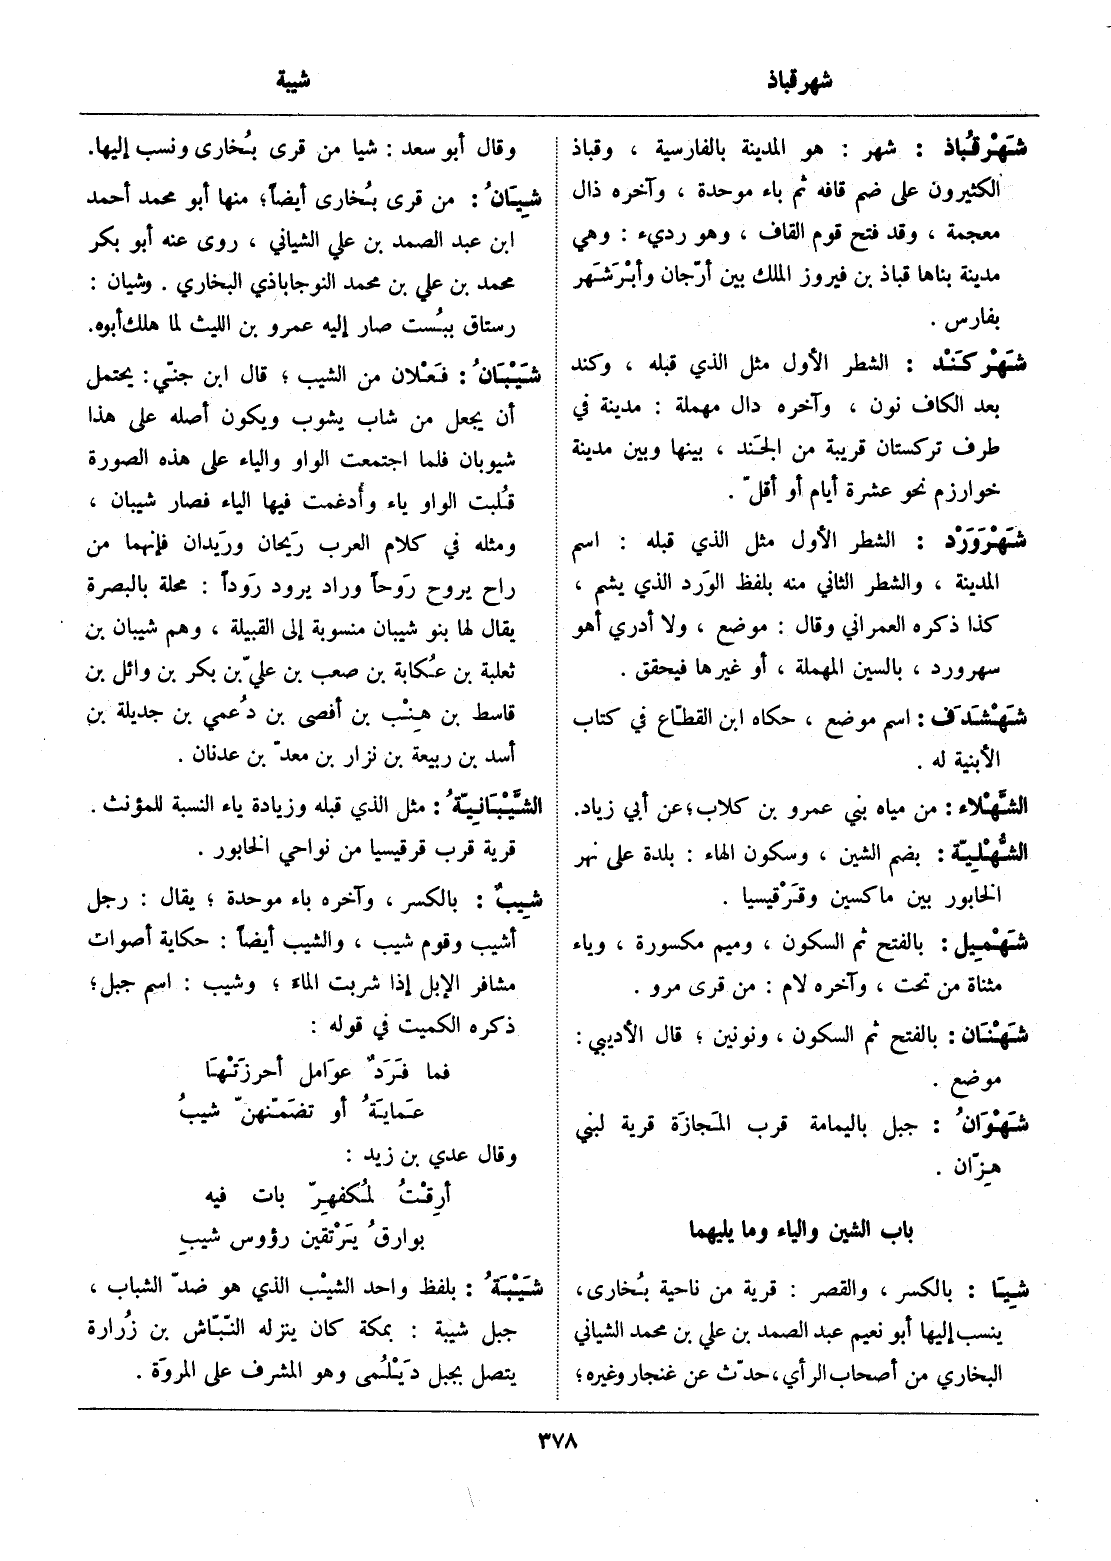 شهرقباذ
شيبة
شَهْرقُباذ : شهر : هو المدينة بالفارسية ، وقباذ
الكثيرون على ضم قافه ثم باء موحدة ، وآخره ذال
معجمة ، وقد فتح قوم القاف ، وهو رديء : وهي
مدينة بناها قباذ بن فيروز الملك بين أرّجان وأبْرَشَهر
بفارس .
شَهْرَكَنْد : الشطر الأول مثل الذي قبله ، وكند
بعد الكاف نون ، وآخره دال مهملة : مدينة في
طرف تركستان قريبة من الجَند ، بينها وبين مدينة
خوارزم نحو عشرة أيام أو أقلّ .
شَهْرَوَرْد : الشطر الأول مثل الذي قبله : اسم
المدينة ، والشطر الثاني منه بلفظ الوَرد الذي يشم ،
كذا ذكره العمراني وقال : موضع ، ولا أدري أهو
سهرورد ، بالسين المهملة ، أو غيرها فيحقق .
شَهْشَدَف : اسم موضع ، حكاه ابن القطّاع في كتاب
الأبنية له .
الشَّهْلاء : من مياه بني عمرو بن كلاب ؛ عن أبي زياد.
الشُّهْلِيّة : بضم الشين ، وسكون الهاء : بلدة على نهر
الخابور بين ماكسين وقَرْقيسيا .
شَهْمِيل : بالفتح ثم السكون ، وميم مكسورة ، وياء
مثناة من تحت ، وآخره لام : من قرى مرو .
شَهْنَان : بالفتح ثم السكون ، ونونين ؛ قال الأديبي :
موضع .
شَهْوَانُ : جبل باليمامة قرب المَجازَة قرية لبني
هِزّان .
باب الشين والياء وما يليهما
شِيَا : بالكسر ، والقصر : قرية من ناحية بُخارى،
ينسب إليها أبو نعيم عبد الصمد بن علي بن محمد الشياني
البخاري من أصحاب الرأي ، حدّث عن غنجار وغيره ؛
وقال أبو سعد : شيا من قرى بُخارى ونسب إليها.
شِيَانُ : من قرى بُخارى أيضاً ؛ منها أبو محمد أحمد
ابن عبد الصمد بن علي الشياني ، روى عنه أبو بكر
محمد بن علي بن محمد النوجاباذي البخاري . وشيان :
رستاق ببُست صار إليه عمرو بن الليث لما هلك أبوه.
شَيْبَانُ : فَعْلان من الشيب ؛ قال ابن جنّي : يحتمل
أن يجعل من شاب يشوب ويكون أصله على هذا
شيوبان فلما اجتمعت الواو والياء على هذه الصورة
قُلبت الواو ياء وأُدغمت فيها الياء فصار شيبان ،
ومثله في كلام العرب رَيحان ورَيدان فإنهما من
راح يروح رَوحاً وراد يرود رَوداً : محلة بالبصرة
يقال لها بنو شيبان منسوبة إلى القبيلة ، وهم شيبان بن
ثعلبة بن عُكابة بن صعب بن عليّ بن بكر بن وائل بن
قاسط بن هِنْب بن أفصى بن دُعمي بن جديلة بن
أسد بن ربيعة بن نزار بن معدّ بن عدنان .
الشَّيْبَانِيّةُ : مثل الذي قبله وزيادة ياء النسبة للمؤنث .
قرية قرب قرقيسيا من نواحي الخابور .
شِيبٌ : بالكسر ، وآخره باء موحدة ؛ يقال : رجل
أشيب وقوم شيب ، والشيب أيضاً : حكاية أصوات
مشافر الإبل إذا شربت الماء ؛ وشيب : اسم جبل ؛
ذكره الكميت في قوله :
فما فَرَدٌ عوامل أحرزَتْها
عَمايَةُ أو تضَمّنهنّ شيبُ
وقال عدي بن زيد :
أرِقْتُ لمُكفهِرّ بات فيه
بوارقُ يَرْتقين رؤوس شيبِ
شَيْبَةُ : بلفظ واحد الشيْب الذي هو ضدّ الشباب ،
جبل شيبة : بمكة كان ينزله النّبّاش بن زُرارة
يتصل بجبل دَيْلُمى وهو المشرف على المروَة .
٣٧٨